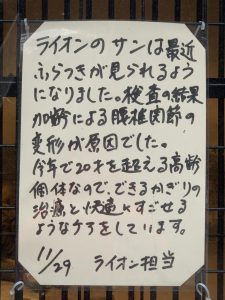 ライオンのサンは最近
ふらつきが見られるよう
になりました。検査の結果
加齢による腰椎肉節の
変形が原因でした。
今年で20才を超える高齢
個体なので、できるかぎりの
治療と快適にすごせる
ようなケアをしています。
11/29 ライオン担当